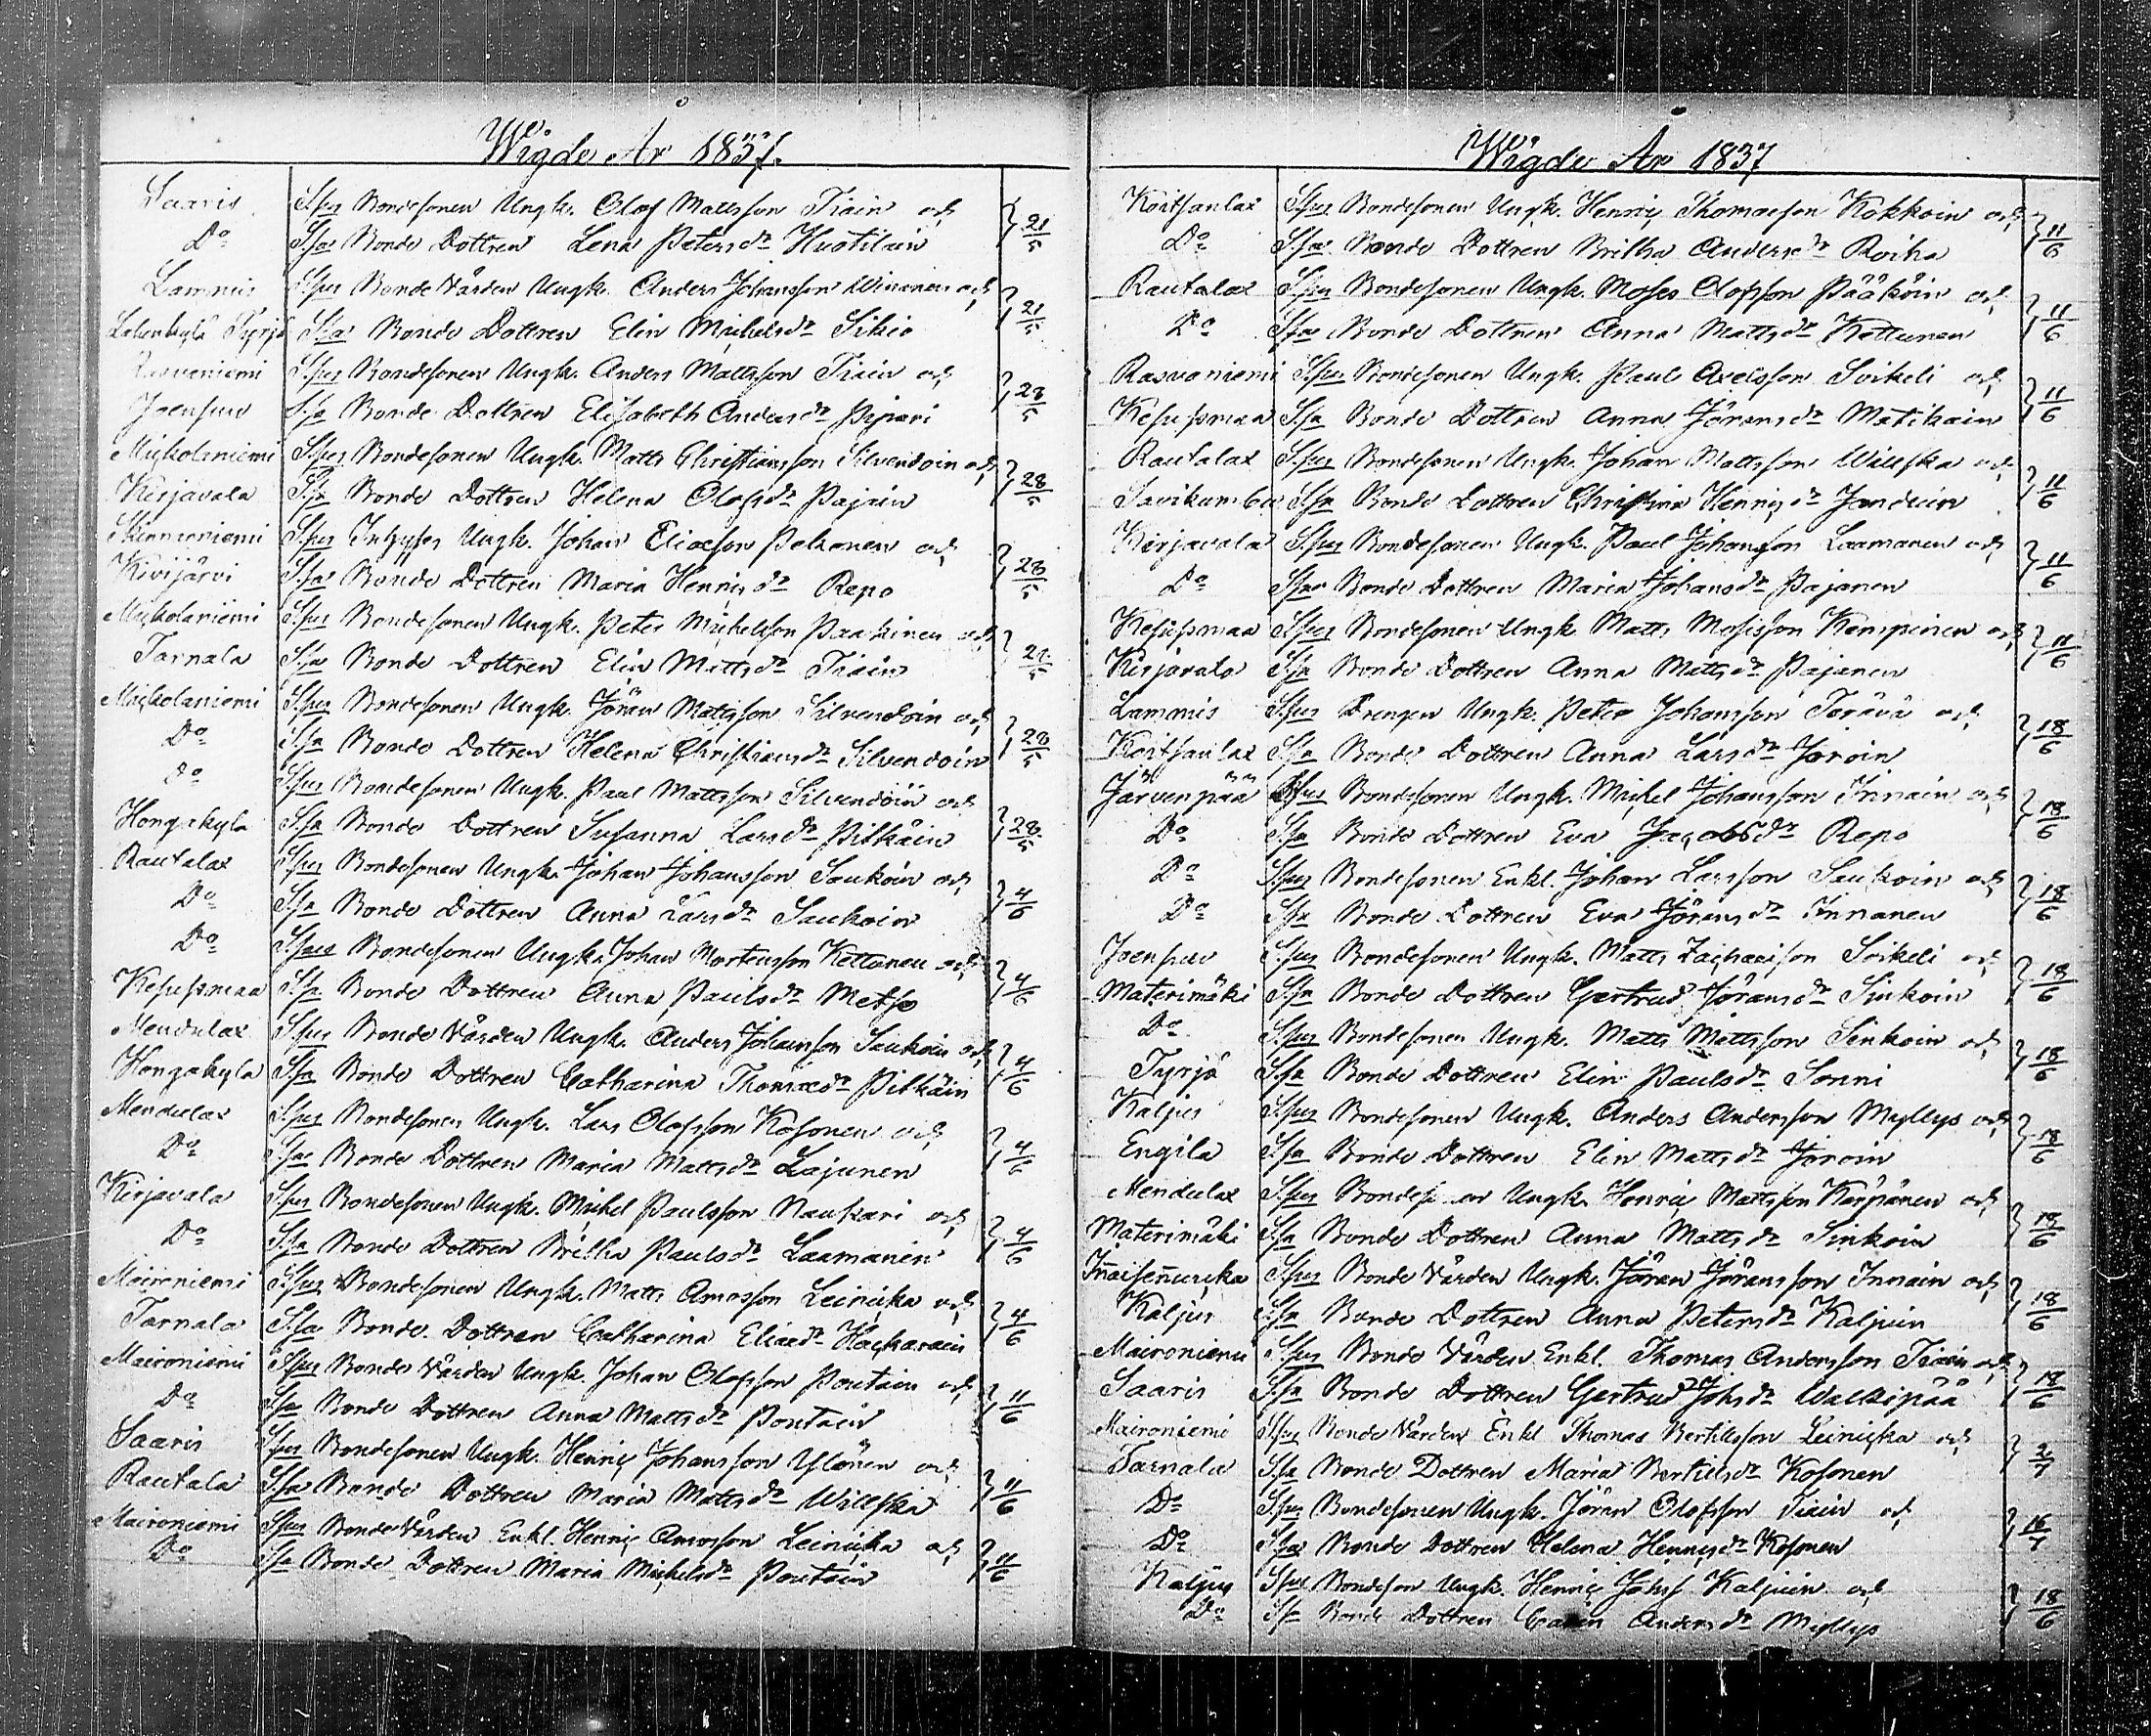 Wigde År 1837.
Saaris Spus Bondesonen Ungk. Olof Mattsson Tiain och
Do Spa Bonde Dottren Lena Petersdr Huotilain 21/5
Lamnis Spus Bonde Vården Ungk. Anders Johansson Winonen och
Tyrjä Spa Bonde Dottren Elin Michelsdr Sikiö 21/5
Rasvaniemi Spus Bondesonen Ungk. Anders Mattsson Tiain och
Joensuu Spa Bonde Dottren Elisabeth Andersdr 28/5
Mickolaniemi Spus Bondesonen Ungk. Matts Christiansson Silvendoin och
Kirjavala Spa Bonde Dottren Helena Olofsdr Pajain 28/5
Spus Inhyses Ungk. Johan Eliasson Pelkonen och
Kivijärvi Spa Bonde Dottren Maria Henricsdr Repo 28/5
Mickolaniemi Spus Bondesonen Ungk. Peter Michelsson Paakinen och
Tarnala Spa Bonde Dottren Elin Mattsdr Tiain
Mickolaniemi Spus Bondesonen Ungk. Jöran Mattsson Silvendoin och
Do Spa Bonde Dottren Helena Christiansdr Silvendoin 28/5
Do Spus Bondesonen Ungk. Paul Mattsson Silvendöin och
Hongakylä Spa Bonde Dottren Susanna Larsdr Pitkäin 28/5
Rautalax Spus Bondesonen Ungk. Johan Johansson Saukoin och
Do Spa Bonde Dottren Anna Larsdr Saukoin 4/6
Do Spus Bondesonen Ungk. Johan Mortensson Kettunen och
Kesusmaa Spa Bonde Dottren Anna Paulsdr Metso 4/6
Mendulax Spus Bonde Vården Ungk. Anders Johansson Saukoin och
Hongakylä Spa Bonde Dottren Catharina Thomasdr Pitkäin 4/6
Mendulax Spus Bondesonen Ungk. Lars Olofsson Kosonen och
Do Spa Bonde Dottren Maria Mattsdr Lajunen 4/6
Kirjavala Spus Bondesonen Ungk. Michel Paulsson Naukari och
Do Spa Bonde Dottren Britha Paulsdr Laamanen 4/6
Maironiemi Spus Bondesonen Ungk. Matts Amosson Leinicka och
Tarnala Spa Bonde Dottren Catharina Eliaedr Hacharain 4/6
Maironiemi Spus Bonde Vården Ungk. Johan Olofsson Poutain och
Do Spa Bonde Dottren Anna Mattsdr Poutain 11/6
Saaris Spus Bondesonen Ungk. Henric Johansson Ylönen och
Rautala Spa Bonde Dottren Maria Mattsdr Willska 11/6
Maironiemi Spus Bonde Vården Enkl. Henric Amosson Leinicka och
Do Spa Bonde Dottren Maria Michelsdr Poutain 11/6
Wigde År 1837
Koitsanlax Spus Bondesonen Ungk. Henric Thomaeson Kokkoin och
Do Spa Bonde Dottren Britha Andersdr Roiha 11/6
Rautalax Spus Bondesonen Ungk. Moses Olofsson Pääköin och
Do Spa Bonde Dottren Anna Mattsdr Kettunen 11/6
Rasvaniemi Spus Bondesonen Ungk. Paul Axelsson Soikeli och
Kesusmaa Spa Bonde Dottren Anna Jöransdr Matikain 11/6
Rautalax Spus Bondesonen Ungk. Johan Mattsson Willska och
Savikumbu Spa Bonde Dottren Christina Henricsdr Janduin 11/6
Kirjavala Spus Bondesonen Ungk. Paul Johansson Laamanen och
Do Spa Bonde Dottren Maria Johansdr Pajanen 11/6
Kesusmaa Spus Bondesonen Ungk. Matts Mosisson Kempinen och
Kirjavala Spa Bonde Dottren Anna Mattsdr Pajanen 11/6
Lammis Spus Drengen Ungk. Peter Johansson Terävä och
Koitsanlax Spa Bonde Dottren Anna Larsdr Joroin 18/6
Järvenpää Spus Bondesonen Ungk. Michel Johansson Innain och
Do Spa Bonde Dottren Eva Jacobsdr Repo 18/6
Do Spus Bondesonen Enkl. Johan Larsson Saukoin och
Do Spa Bonde Dottren Eva Jöransdr Innanen 18/6
Joensuu Spus Bondesonen Ungk. Matts Zachaeison Soikeli och
Materimäki Spa Bonde Dottren Gertrud Jöransdr Sinkoin 18/6
Do Spus Bondesonen Ungk. Matts Mattsson Sinkoin och
Tyrjä Spa Bonde Dottren Elin Paulsdr Sonni 18/6
Kaljus Spus Bondesonen Ungk. Anders Andersson Myllys och
Engila Spa Bonde Dottren Elin Mattsdr Joroin 18/6
Mendulax Spus Ungk. Henric Mattsson Karpänen och
Materimäki Spa Bonde Dottren Anna Mattsdr Sinkoin 18/6
Spus Bonde Vården Ungk. Jöran Jöransson Innain och
Kaljus Spa Bonde Dottren Anna Petersdr Kaljuin 18/6
Maironiemi Spus Bonde Vården Enkl. Thomas Andersson Tiain och
Saaris Spa Bonde Dottren Gertrud Johsdr Walkipää 18/6
Maironiemi Spus Bonde Vården Enkl Thomas Bertilsson Leinicka och
Tarnala Spa Bonde Dottren Maria Bertilsdr Kosonen 2/7
Do Spus Bondesonen Ungk. Jöran Olofsson Tiain och
Do Spa Bonde Dottren Helena Henricsdr Kosonen 16/7
Kaljus Spus Bondeson Ungk. Henric Johss Kaljuin och
Do Spa Bonde Dottren Carin Andersdr Myllys 18/6